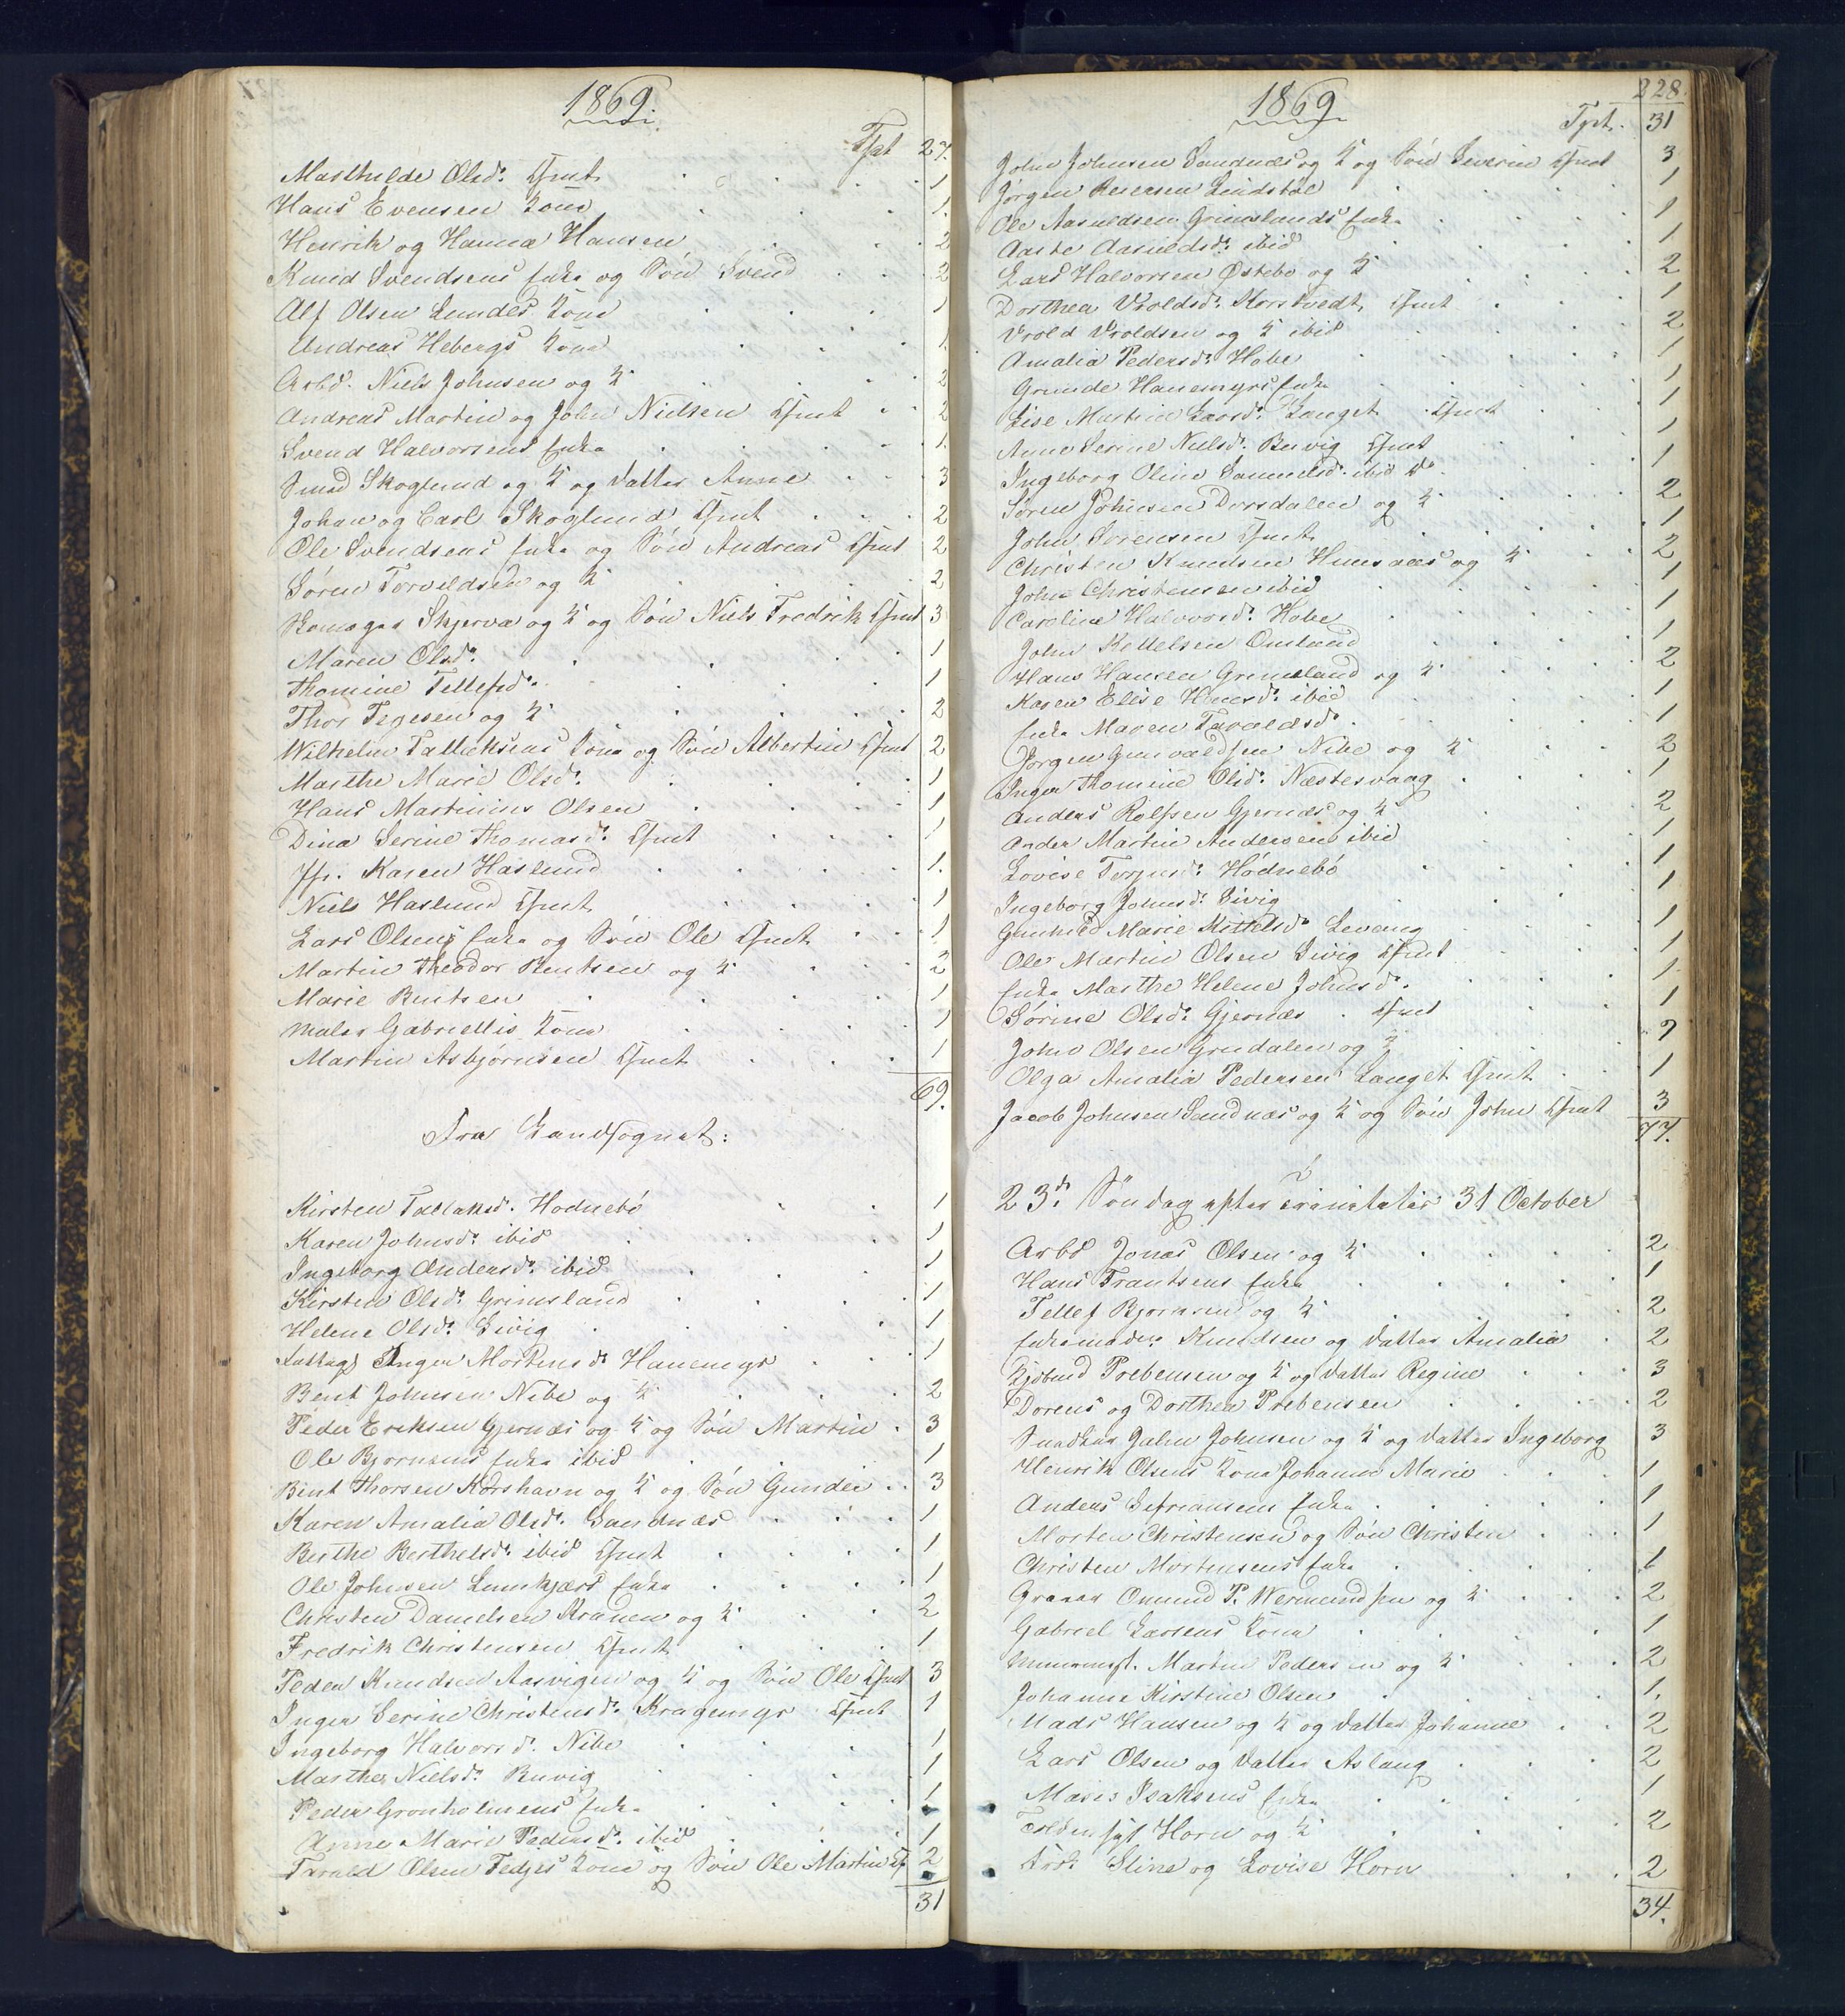 1869.
Tpt 27.
Marthilde Olsd. Ifmt 1
Hans Evensens Kone 1.
Henrik og Hanna Hansen 2
Knud Svendsens Enke og Søn Svend 2
Alf Olsen Lundes Kone 1
Andreas Hebergs Kone 1.
Arbd. Niels Johnsen og K 2
Andreas Martin og John Nielsen Ifmt 2
Svend Halvorsens Enke 1.
Smed Skoglund og K og Datter Anne 3
Johan og Carl Skoglund Ifmt 2
Ole Svendsens Enke og Søn Andreas Ifmt 2
Søren Torvildsen og K 2
Skjerva og K og Søn Niels Fredrik Ifmt 3
Maren Olsd. 1
Thomine Tellefsd. 1
Thor Terjesen og K 2
Wilhelm Tallaksens Kone og Søn Albertin Ifmt 2
Marthe Marie Olsd. 1
Hans Martinius Olsen 1
Dina Serine Thomasd. Ifmt 1
Jfr. Karen Haslund 1.
Niels Haslund Ifmt 1
Lars Olsens Enke og Søn Ole Ifmt 1
Martin Theodor Bentsen og K 2
Marie Bentsen 1
Maler Gabriellis Kone 1
Martin Asbjørnsen Ifmt 1
69.
Fra Landsognet:
Kirsten Tallaksd. Hødnebø 1
Karen Johnsd. ibid 1
Ingeborg Andersd. ibid 1
Kirsten Olsd. Grimsland 1
Helene Olsd. Sivig 1
Inger Mortensd. Hanemyr 1
Bent Johnsen Nibe og K 2
Peder Eriksen Gjernæs og K og Søn Martin 3
Ole Bjørnsens Enke ibid 1
Bent Thorsen Korshavn og K og Søn Gunder 3
Karen Amalia Olsd. Sandnæs 1
Berthe Berthelsd. ibid Ifmt 1
Ole Johnsen Lunskjærs Enke 1
Christen Danielsen Kranen og K 2
Fredrik Christensen Ifmt 1
Peder Knudsen Aasvigen og K og Søn Ole Ifmt 3
Inger Serine Christensd. Kragemyr Ifmt 1
Ingeborg Halvorsd. Nibe 1
Marthe Nielsd. Buvig 1
Peder Gronholmens Enke 1
Anne Marie Pedersd. ibid 1
Tarald Olsen Tedjes Kone og Søn Ole Martin If 2
31
1869
228.
Tpt. 31
John Johnsen Sandnæs og K og Søn Severin Ifmt 3
Jørgen Reiersen Lindstøl 1
Ole Aasuldsen Grimslands Enke 1
Aaste Aasuldsd. ibid 1
Lars Halvorsen Østebø og K 2
Dorthea Vroldsd. Korstvedt Ifmt 1
Vrold Vroldsen og K ibid 2
Amalia Pedersd. Hobe 1
Grunde Hanemyrs Enke 1
Lise Martine Larsd. Langet Ifmt 1
Anne Serine Nielsd. Buvig Ifmt 1
Ingeborg Oline Samuelsd. ibid do. 1
Søren Johnsen Dorsdalen og K 2
John Sørensen Ifmt 1
Christen Knudsen Humaas og K 2
John Christensen ibid 1
Caroline Halvorsd. Hobe 1
John Kettelsen Omland 1
Hans Hansen Grimsland og K 2
Karen Elise Hansd. ibid 1
Enke Maren Taraldsd. 1
Jørgen Gunvaldsen Nibe og K 2
Inger Thomine Olsd. Næstesvaag 1
Anders Rolfsen Gjernæs og K 2
Ander Martin Andersen ibid 1
Lovise Terjusd. Hødnebø 1
Ingeborg Johnsd. Sivig 1
Gunhild Marie Kittelsd. Levang 1
Ole Martin Olsen Sivig Ifmt 1
Enke Marthe Helene Johnsd. 1
Sørine Olsd. Gjernæs Ifmt 1
John Olsen Grudalen og K 2
Olga Amalia Pedersen Langet Ifmt 1
Jacob Johnsen Sandnæs og K og Søn John Ifmt 3
77.
23d. Søndag efter Trinitatis 31 October
Arbd Jonas Olsen og K 2
Hans Frantsens Enke 1
Tellef Bjørnsen og K 2
Knudsen og Datter Amalia 2
Kjøbmd Prebensen og K og Datter Regine 3
Dorens og Dorthea Prebensen 2
Snedker John Johnsen og K og Datter Ingeborg 3
Henrik Olsens Kone Johanne Marie 1
Anders Enke 1
Morten Christensen og Søn Christen 1
Christen Mortensens Enke 1
Graver Omund P. Wermundsen og K 2
Gabriel Larsens Kone 1
Murermst. Martin Pedersen og K 2
Johanne Kirstine Olsen 1.
Mads Hansen og K og Datter Johanne 2
Lars Olsen og Datter Aslaug 2
Mari Isaksens Enke 1
Horn og K 2
Stine og Lovise Horn 2
34.